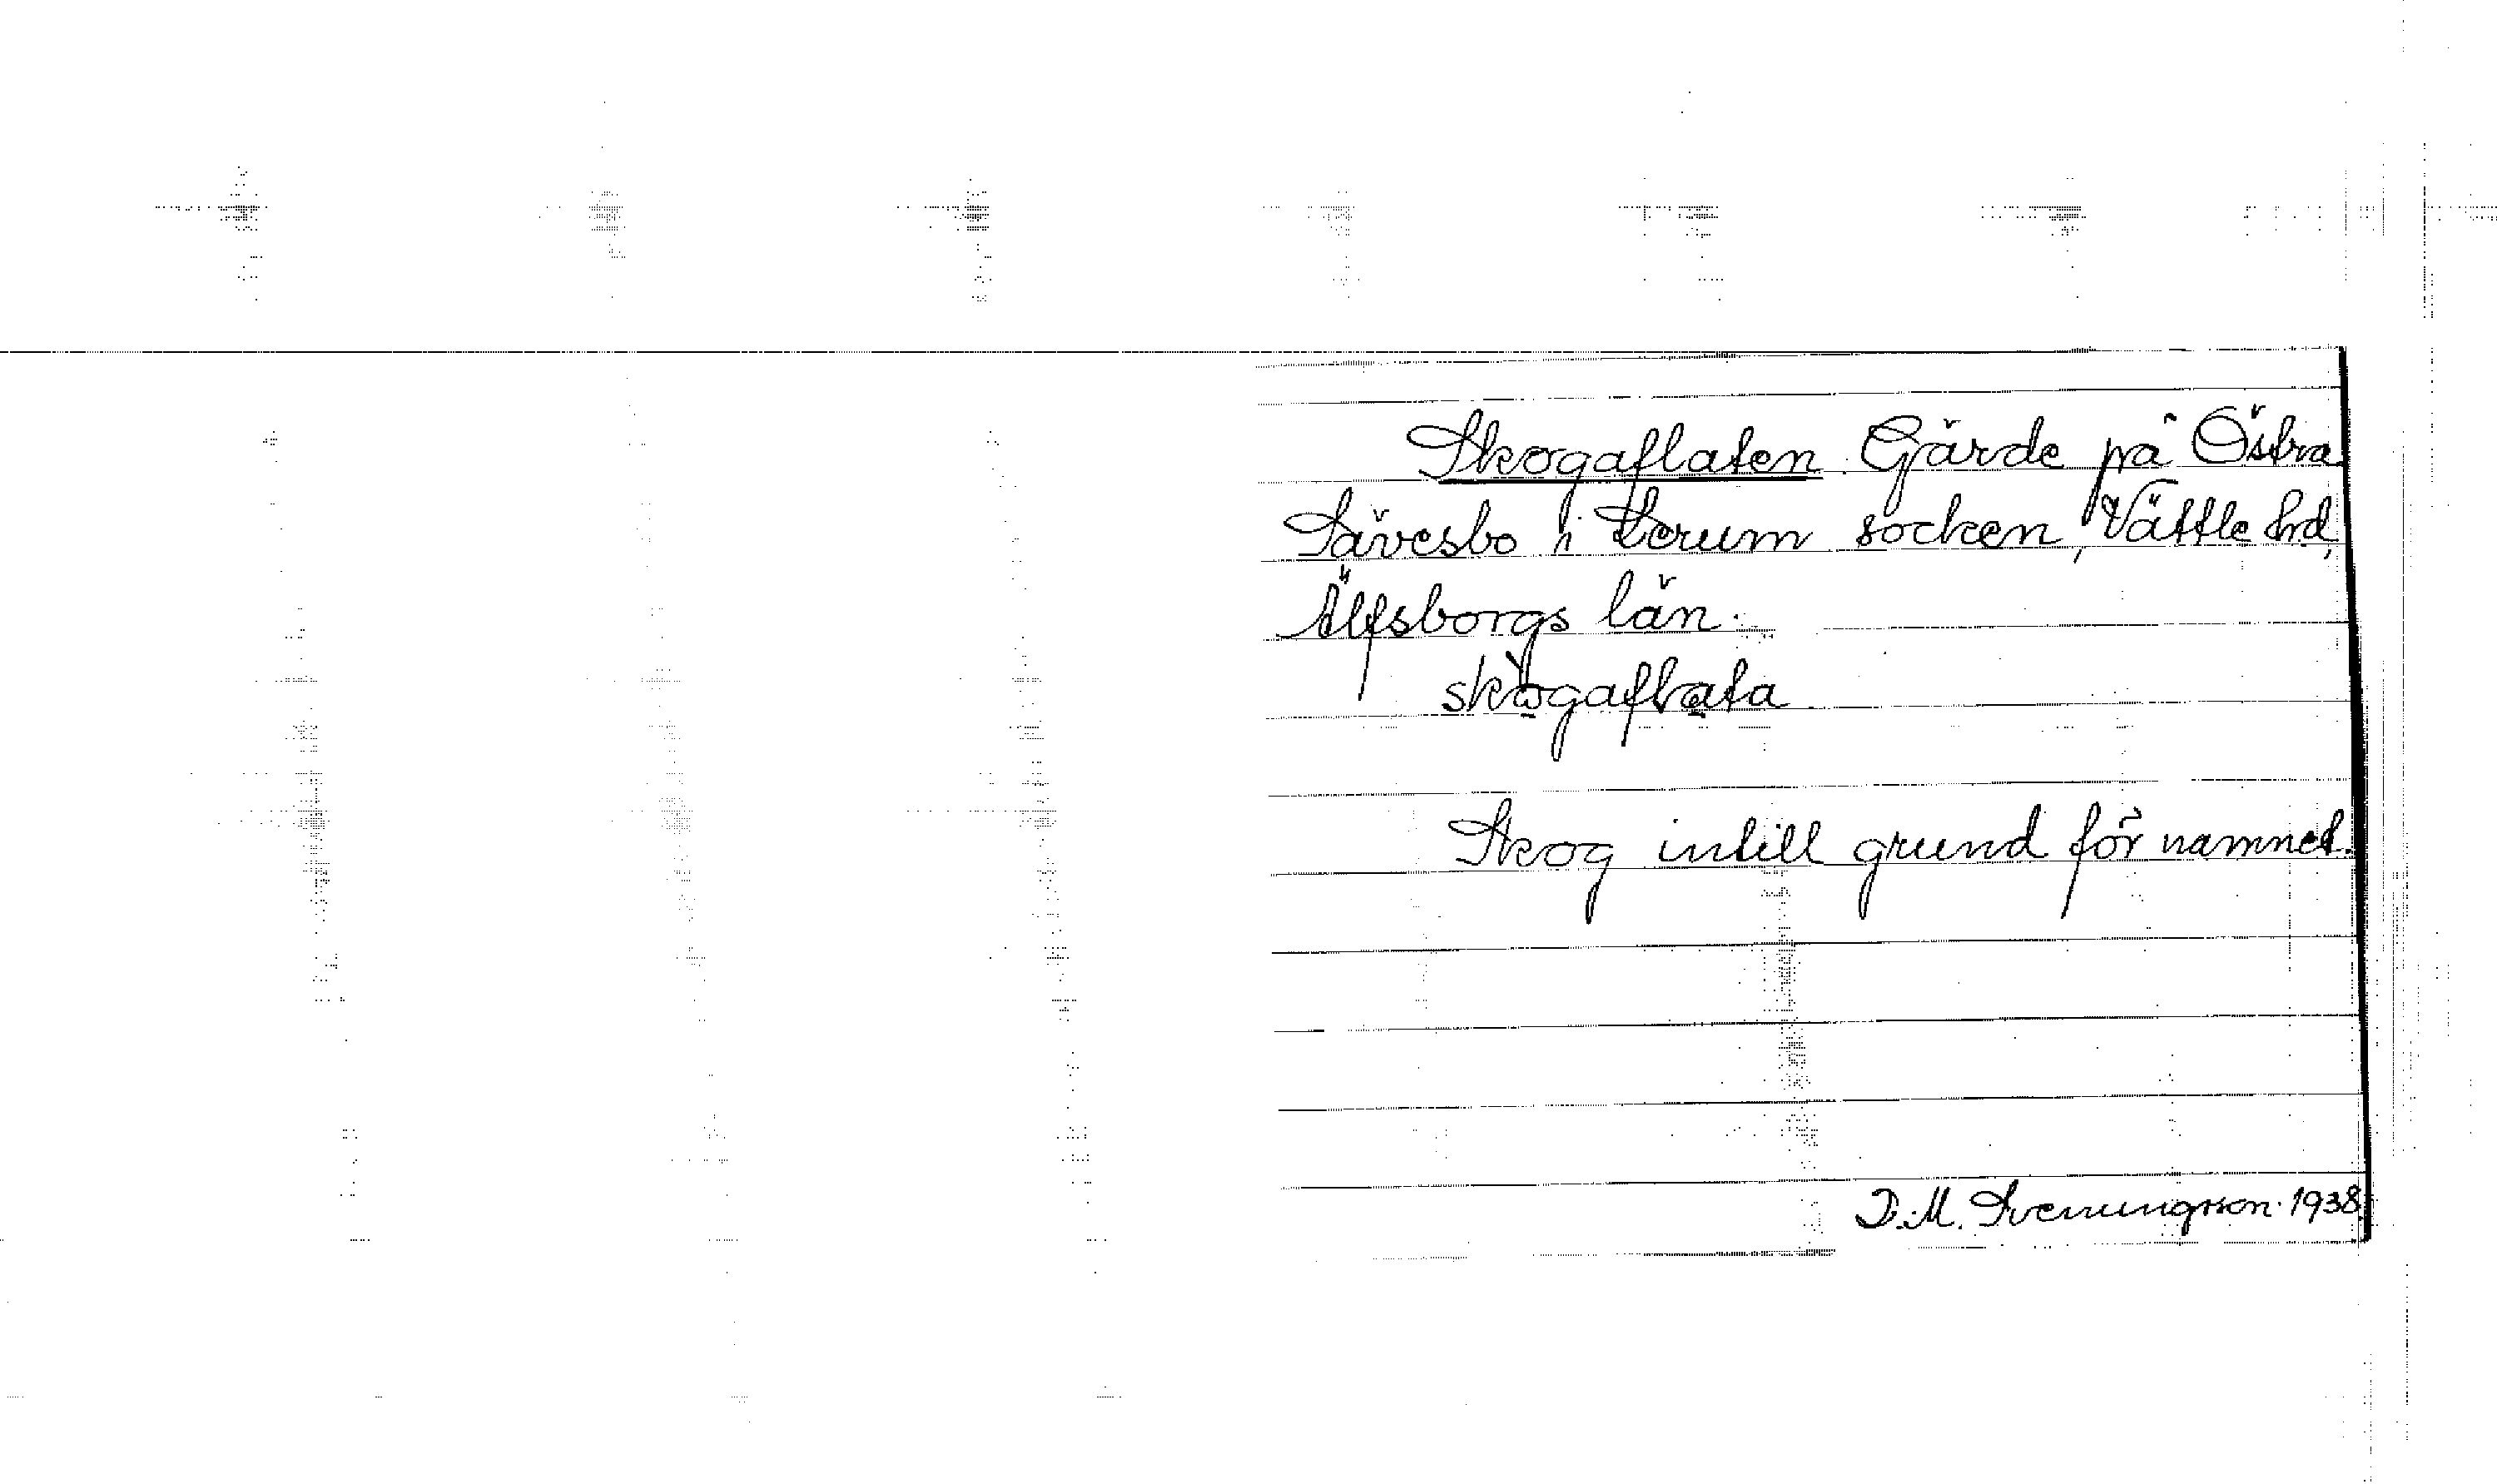 Skogaflaten. Gärde på Östra
Sävesbo i Lerum socken, Vättle hrd,
Älfsborgs län.
skògaflata
Skog intill grund för namnet.
D. M. Svenungsson. 1938.